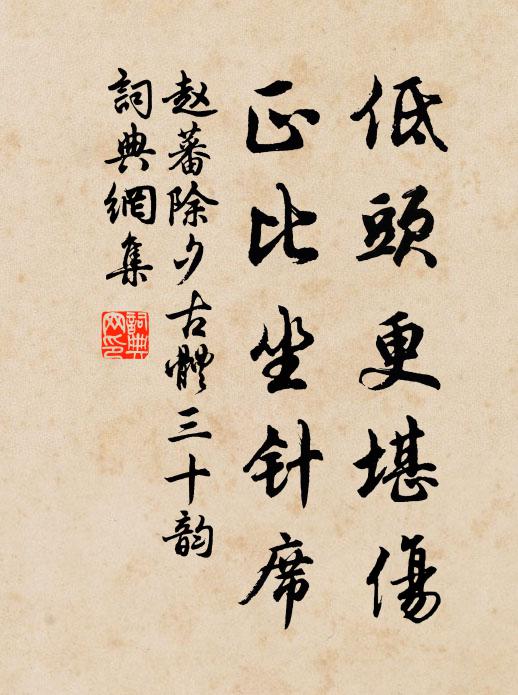 低頭更堪傷
正比坐针席
赵蕃除夕古體三十韵
詞典網集
詞典網印